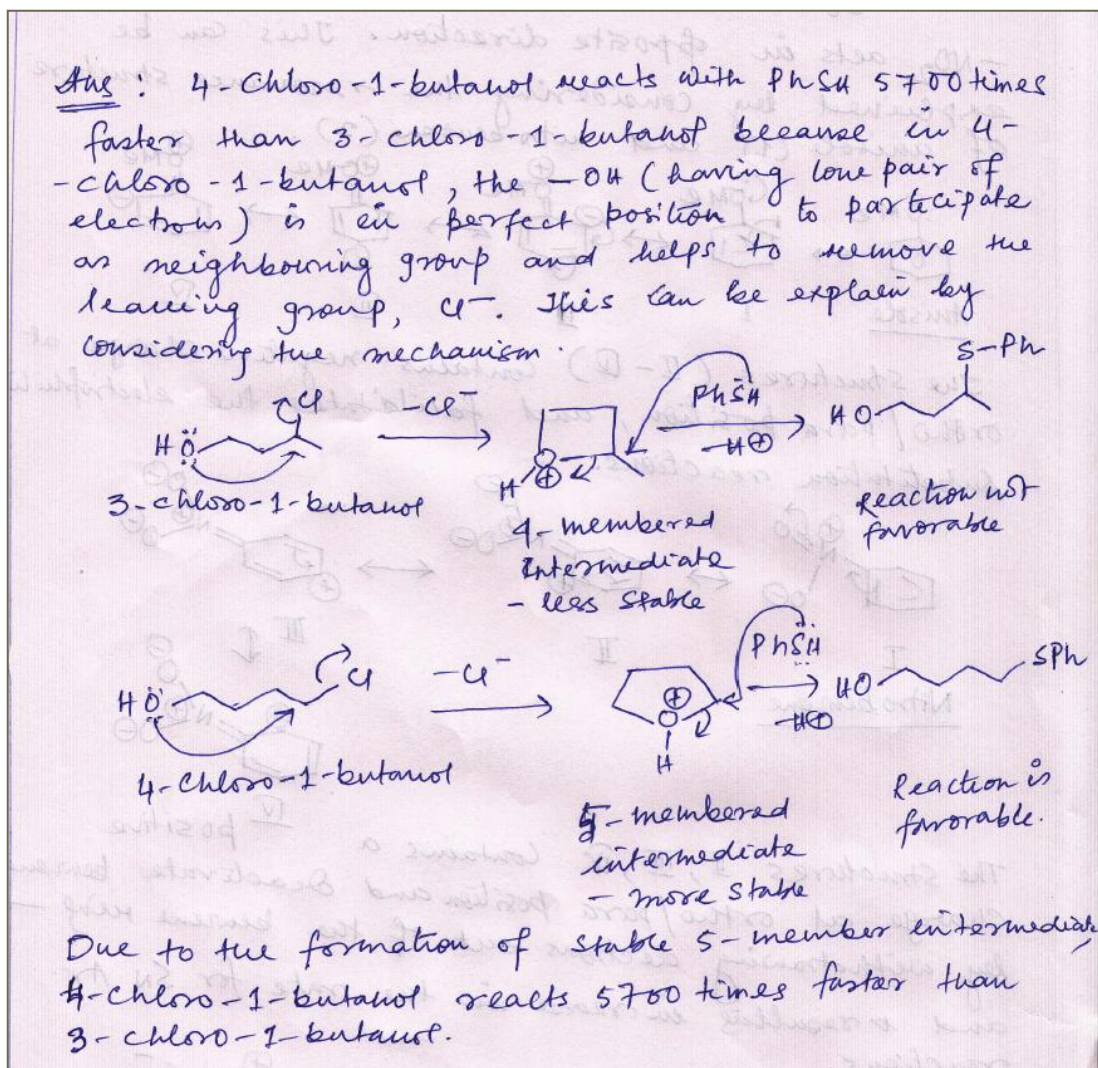 Ans : 4-Chloro-1-butanol reacts with PhSH 5700 times
faster than 3-chloro-1-butanol because in 4-
-chloro-1-butanol, the —OH (having lone pair of
electrons) is in perfect position to participate
as neighbouring group and helps to remove the
leaving group, Cl⁻. This can be explain by
considering the mechanism.
S-Ph
Cl
-Cl⁻
PhSH
HO
HO
-H⊕
O
H
⊕
3-chloro-1-butanol
4-membered
intermediate
- less stable
Reaction not
favorable
Cl
-Cl⁻
PhSH
SPh
HO
⊕
HO
-H⊕
O
H
4-Chloro-1-butanol
5-membered
intermediate
- more stable
Reaction is
favorable.
Due to the formation of stable 5-member intermediate,
4-Chloro-1-butanol reacts 5700 times faster than
3-chloro-1-butanol.